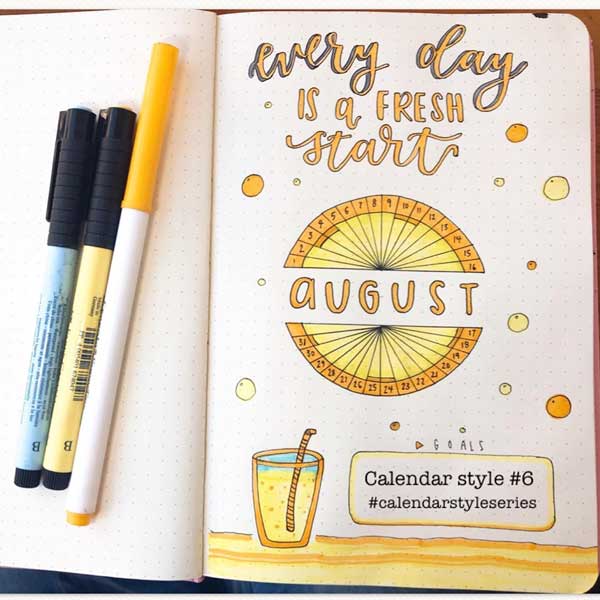 every day
IS a FRESH
start
1 2 3 4 5 6 7 8 9 10 11 12 13 14 15 16
AUGUST
31 30 29 28 27 26 25 24 23 22 21 20 19 18 17
GOALS
Calendar style #6
#calendarstyleseries
B
B